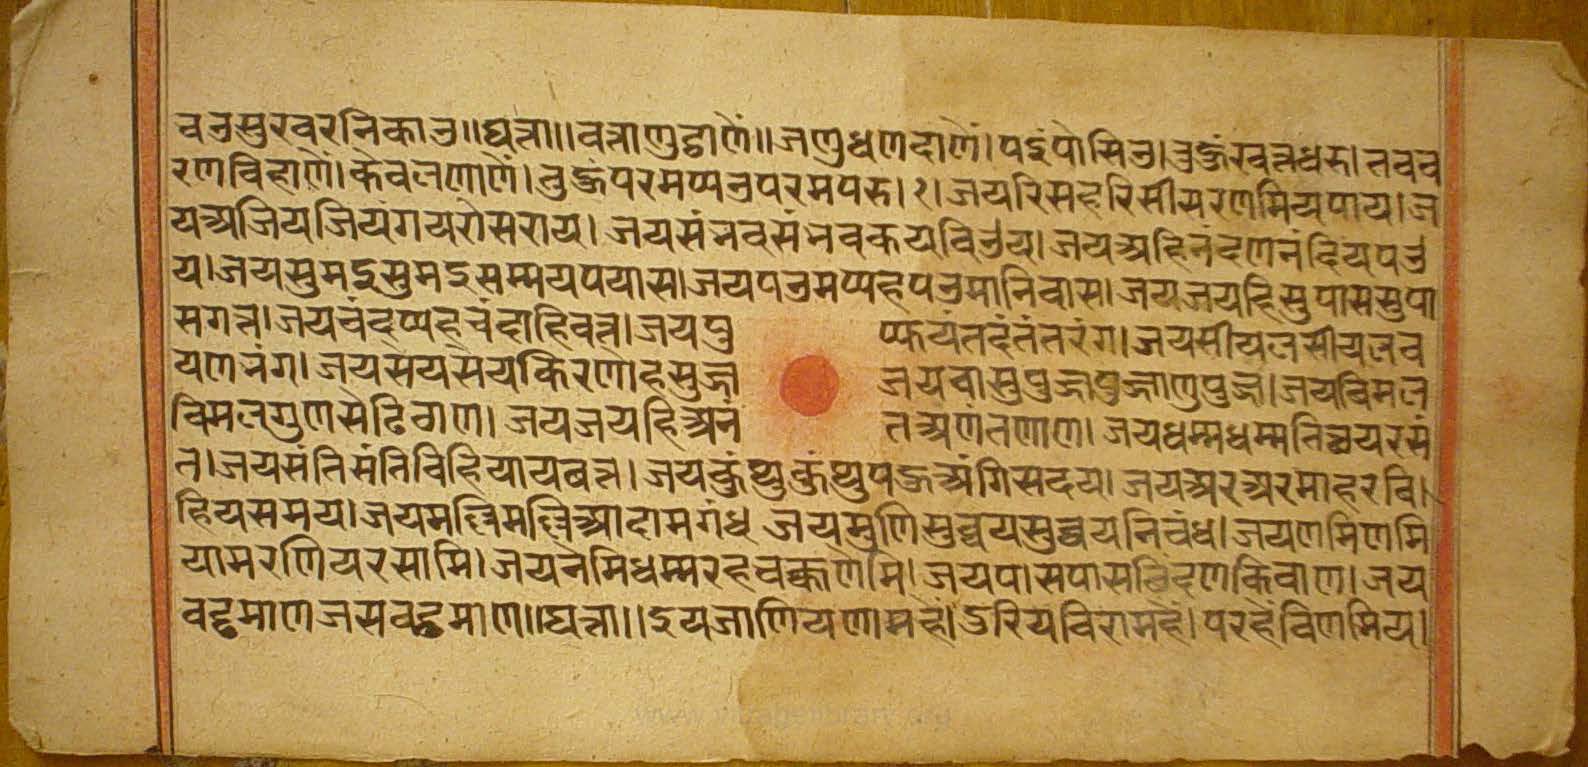 वउसुरवरनिकाउ॥घत्ता॥वत्ताणुट्ठाणें॥जणुधणदाणें।पइंपोसिउ।तुहुंखत्तधरु।तवचव
रणविहाणें।केवलणाणें।तुहुंपरमप्पउपरमपरु।१।जयरिसहरिसीसरणमियपाय।ज
यअजियजियंगयरोसराय।जयसंभवसंभवकयविउय।जयअहिनंदणनंदियपउ
य।जयसुमइसुमइसम्मयपयास।जयपउमप्पहपउमानिवास।जयजयहिसुपाससुपा
सगत्त।जयचंदप्पहचंदाहिवत्त।जयपु प्फयंतदंतंतरंग।जयसीयलसीयलव
यणभंग।जयसेयसेयकिरणोहसुज्ज जयवासुपुज्जपुज्जाणुपुज्ज।जयविमल
विमलगुणसेढिठाण।जयजयहिअनं तअणंतणाण।जयधम्मधम्मतिच्छयरसं
त।जयसंतिसंतिविहियायवत्त।जयकुंथुकुंथुपहुअंगिसदय।जयअरअरमाहरवि।
हियसमय।जयमल्लिमल्लिआदामगंध जयमुणिसुव्वयसुव्वयनिबंध।जयणमिणमि
यामरणियरसामि।जयनेमिधम्मरहचक्कणेमि।जयपासपासछिंदणकिवाण।जय
वड्ढमाणजसवड्ढमाण॥घत्ता॥इयजाणियणामहं।दुरियविरामहं।परहंविणमिय।